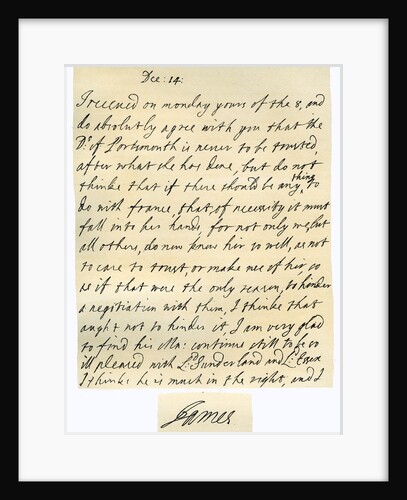 Dec: 14:
I receued on monday yours of the 8, and
do absolutly agree with you that the
Ds. of Portsmouth is neuer to be trusted,
after what she has done, but do not
thinke that if there should be any thing to
do with france, that, of necessity it must
fall into her hands, for not only we, but
all others, do now know her so well, as not
to care to trust, or make use of her, so
as if that were the only reason, to hinder
a negitiation with them, I thinke that
aught not to hinder it, I am very glad
to find his Ma: continues still to be so
ill pleased with Ld. Sunderland and Ld. Essex
I thinke he is much in the right, and I
James